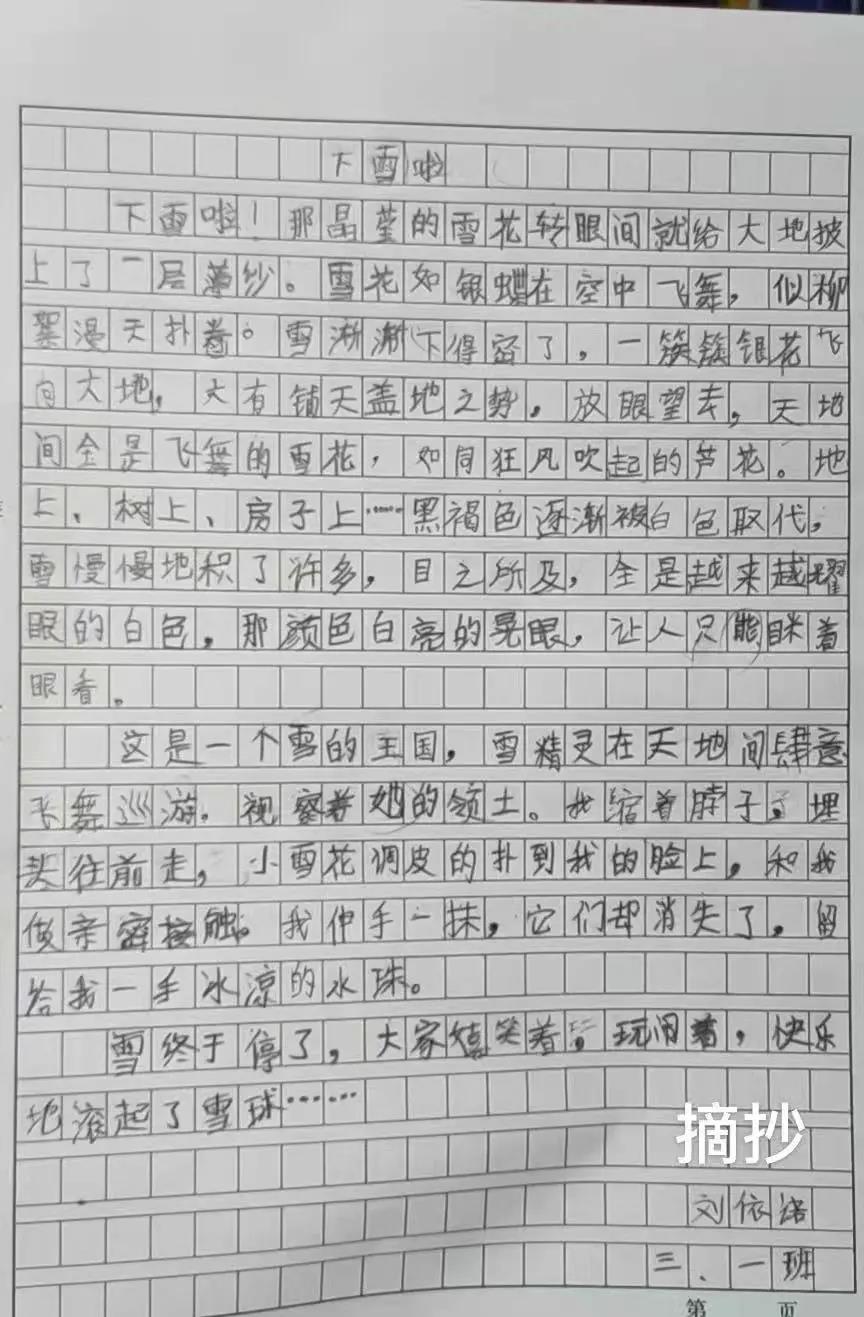 下雪啦
下雪啦！那晶莹的雪花转眼间就给大地披
上了一层薄纱。雪花如银蝶在空中飞舞，似柳
絮漫天扑卷。雪渐渐下得密了，一簇簇银花飞
向大地，大有铺天盖地之势。放眼望去，天地
间全是飞舞的雪花，如同狂风吹起的芦花。地
上、树上、房子上……黑褐色逐渐被白色取代，
雪慢慢地积了许多，目之所及，全是越来越耀
眼的白色。那颜色白亮的晃眼，让人只能眯着
眼看。
这是一个雪的王国，雪精灵在天地间肆意
飞舞巡游，视察着她的领土。我缩着脖子，埋
头往前走，小雪花调皮的扑到我的脸上，和我
做亲密接触。我伸手一抹，它们却消失了，留
给我一手冰凉的水珠。
雪终于停了，大家嬉笑着，玩闹着，快乐
地滚起了雪球……
摘抄
刘依诺
三、一班
第 页